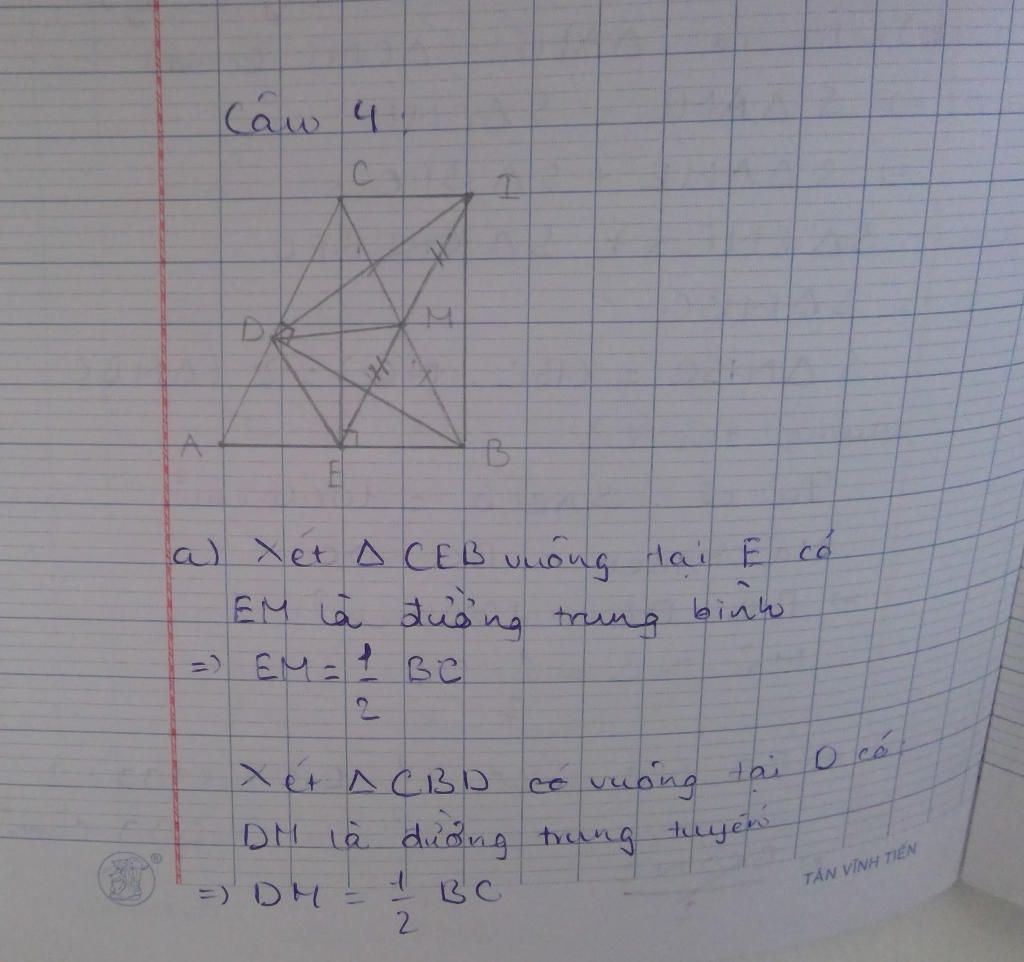 Câu 4
C I
D M
A E B
a) Xét Δ CEB vuông tại E có
EM là đường trung bình
=> EM = 1/2 BC
Xét Δ CBD có vuông tại D có
DM là đường trung tuyến
=> DM = 1/2 BC
TÂN VĨNH TIẾN